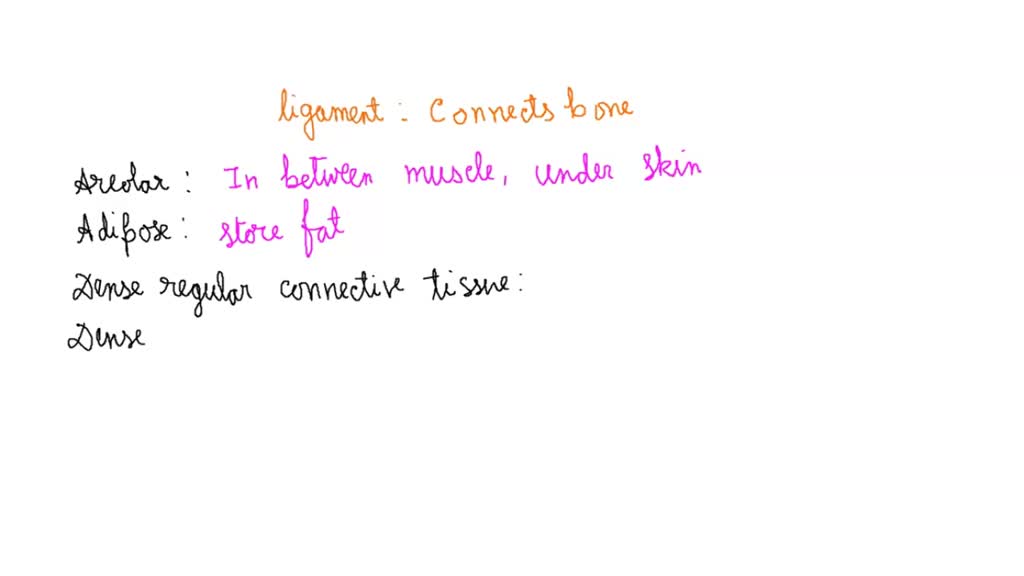 ligament : Connects bone
Areolar : In between muscle, under skin
Adipose : store fat
Dense regular connective tissue :
Dense